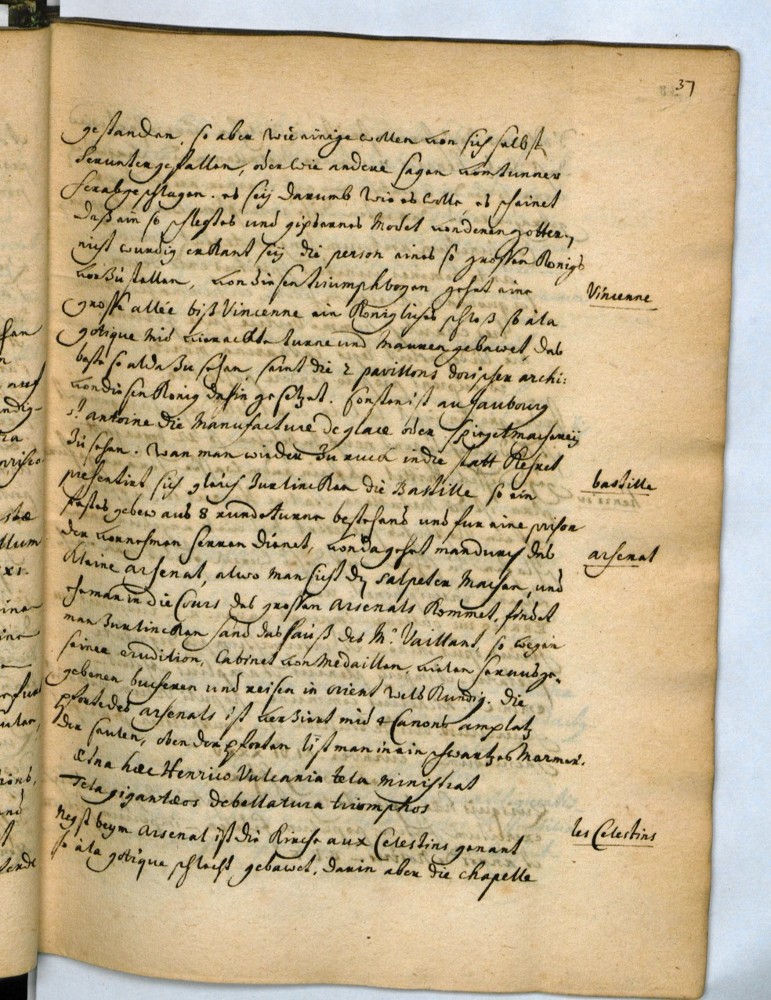 37
gestanden, so aber wie einige wollen von sich selbst
herunter gefallen, oder wie andere sagen vom tunner
herabgeschlagen. es seÿ darumb wie es wolle es scheinet
daß ein so schlegtes und gipsernes Model von denen götter,
nicht wurdig erkant seÿ die person eines so grossen Königs
vorzustellen, von diesen triumphbogen gehet eine
Vincenne
grosse allée biß Vincenne ein Königliches schloß so à la
gotique mid viereckte turne und Mauren gebawet, das
beste so alda zu sehen, seint die 2 pavillons dorischer archi:
von diesen König dahin gesetzet. sonsten ist au faubourg
st. antoine die Manufacture de glace oder Spiegelmacherey
zu sehen. Wan man wieder zu ruck in die statt Kehret
presentirt sich gleich zur lincken die Bastille so ein
bastille
festes gebew aus 8 runde turne bestehend und fur eine prison
der vornehmen herren dienet, von da gehet man durch das
arsenat
kleine arsenat, alwo man sieht den salpeter machen, und
ehe man in die Cours des grossen Arsenals kommet, findet
man zur lincken hand das hauß des Mr. Vaillant, so wegen
seiner erudition, Cabinet von Medaillen, vielen herausge-
gebenen bucheren und reisen in orient woll kundig. die
pforte des arsenals ist verziert mid 4 Canons am platz
der seulen, oben der pforten list man in ein schwartzes Marmer.
Ætna hæc Henrico Vulcania tela ministrat
Tela giganteos debellatura triumphos
negst beym Arsenal ist die Kirche aux Celestins genant
les Celestins
so à la gotique schlecht gebawet, darin aber die chapelle